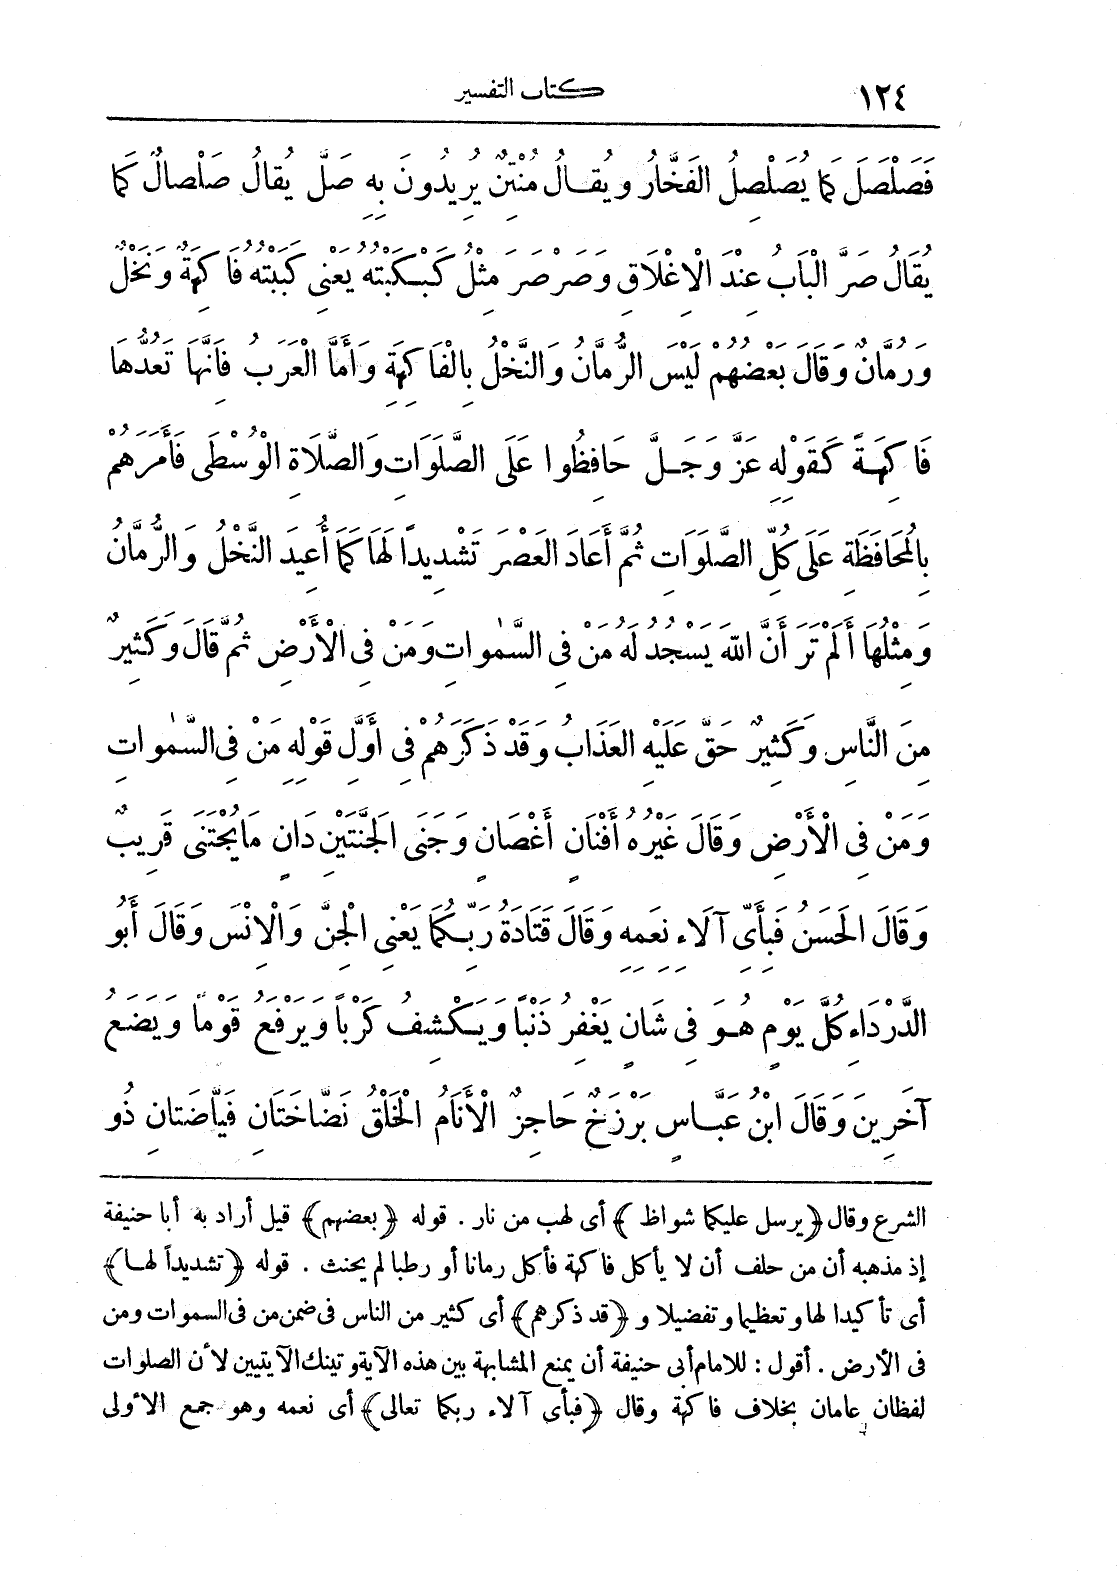 ١٢٤ كتاب التفسير
فَصَلْصَلَ كَمَا يُصَلْصِلُ الفَخَّارُ وَيُقَالُ مُنْتِنٌ يُرِيدُونَ بِهِ صَلَّ يُقَالُ صَلْصَالٌ كَمَا
يُقَالُ صَرَّ الْبَابُ عِنْدَ الْإِغْلَاقِ وَصَرْصَرَ مِثْلُ كَبْكَبْتُهُ يَعْنِي كَبَبْتُهُ فَاكِهَةٌ وَنَخْلٌ
وَرُمَّانٌ وَقَالَ بَعْضُهُمْ لَيْسَ الرُّمَّانُ وَالنَّخْلُ بِالْفَاكِهَةِ وَأَمَّا الْعَرَبُ فَإِنَّهَا تَعُدُّهَا
فَاكِهَةً كَقَوْلِهِ عَزَّ وَجَلَّ حَافِظُوا عَلَى الصَّلَوَاتِ وَالصَّلَاةِ الْوُسْطَى فَأَمَرَهُمْ
بِالْمُحَافَظَةِ عَلَى كُلِّ الصَّلَوَاتِ ثُمَّ أَعَادَ العَصْرَ تَشْدِيداً لَهَا كَمَا أُعِيدَ النَّخْلُ وَالرُّمَّانُ
وَمِثْلُهَا أَلَمْ تَرَ أَنَّ اللهَ يَسْجُدُ لَهُ مَنْ فِي السَّمٰوَاتِ وَمَنْ فِي الْأَرْضِ ثُمَّ قَالَ وَكَثِيرٌ
مِنَ النَّاسِ وَكَثِيرٌ حَقَّ عَلَيْهِ العَذَابُ وَقَدْ ذَكَرَهُمْ فِي أَوَّلِ قَوْلِهِ مَنْ فِي السَّمٰوَاتِ
وَمَنْ فِي الْأَرْضِ وَقَالَ غَيْرُهُ أَفْنَانٍ أَغْصَانٍ وَجَنَى الْجَنَّتَيْنِ دَانٍ مَا يُجْتَنَى قَرِيبٌ
وَقَالَ الْحَسَنُ فَبِأَيِّ آلَاءِ نِعَمِهِ وَقَالَ قَتَادَةُ رَبِّكُمَا يَعْنِي الْجِنَّ وَالْإِنْسَ وَقَالَ أَبُو
الدَّرْدَاءِ كُلَّ يَوْمٍ هُوَ فِي شَانٍ يَغْفِرُ ذَنْبًا وَيَكْشِفُ كَرْبًا وَيَرْفَعُ قَوْمًا وَيَضَعُ
آخَرِينَ وَقَالَ ابْنُ عَبَّاسٍ بَرْزَخٌ حَاجِزٌ الْأَنَامُ الْخَلْقُ نَضَّاخَتَانِ فَيَّاضَتَانِ ذُو
الشرع وقال ﴿يرسل عليكما شواظ﴾ أى لهب من نار . قوله ﴿بعضهم﴾ قيل أراد به أبا حنيفة
إذ مذهبه أن من حلف أن لا يأكل فاكهة فأكل رمانا أو رطبا لم يحنث . قوله ﴿تشديداً لها﴾
أى تأكيدا لها وتعظيما وتفضيلا و ﴿قد ذكرهم﴾ أى كثير من الناس فى ضمن من فى السموات ومن
فى الأرض . أقول : للامام أبى حنيفة أن يمنع المشابهة بين هذه الآية وتينك الآيتين لأن الصلوات
لفظان عامان بخلاف فاكهة وقال ﴿فبأى آلاء ربكما تعالى﴾ أى نعمه وهو جمع الأولى